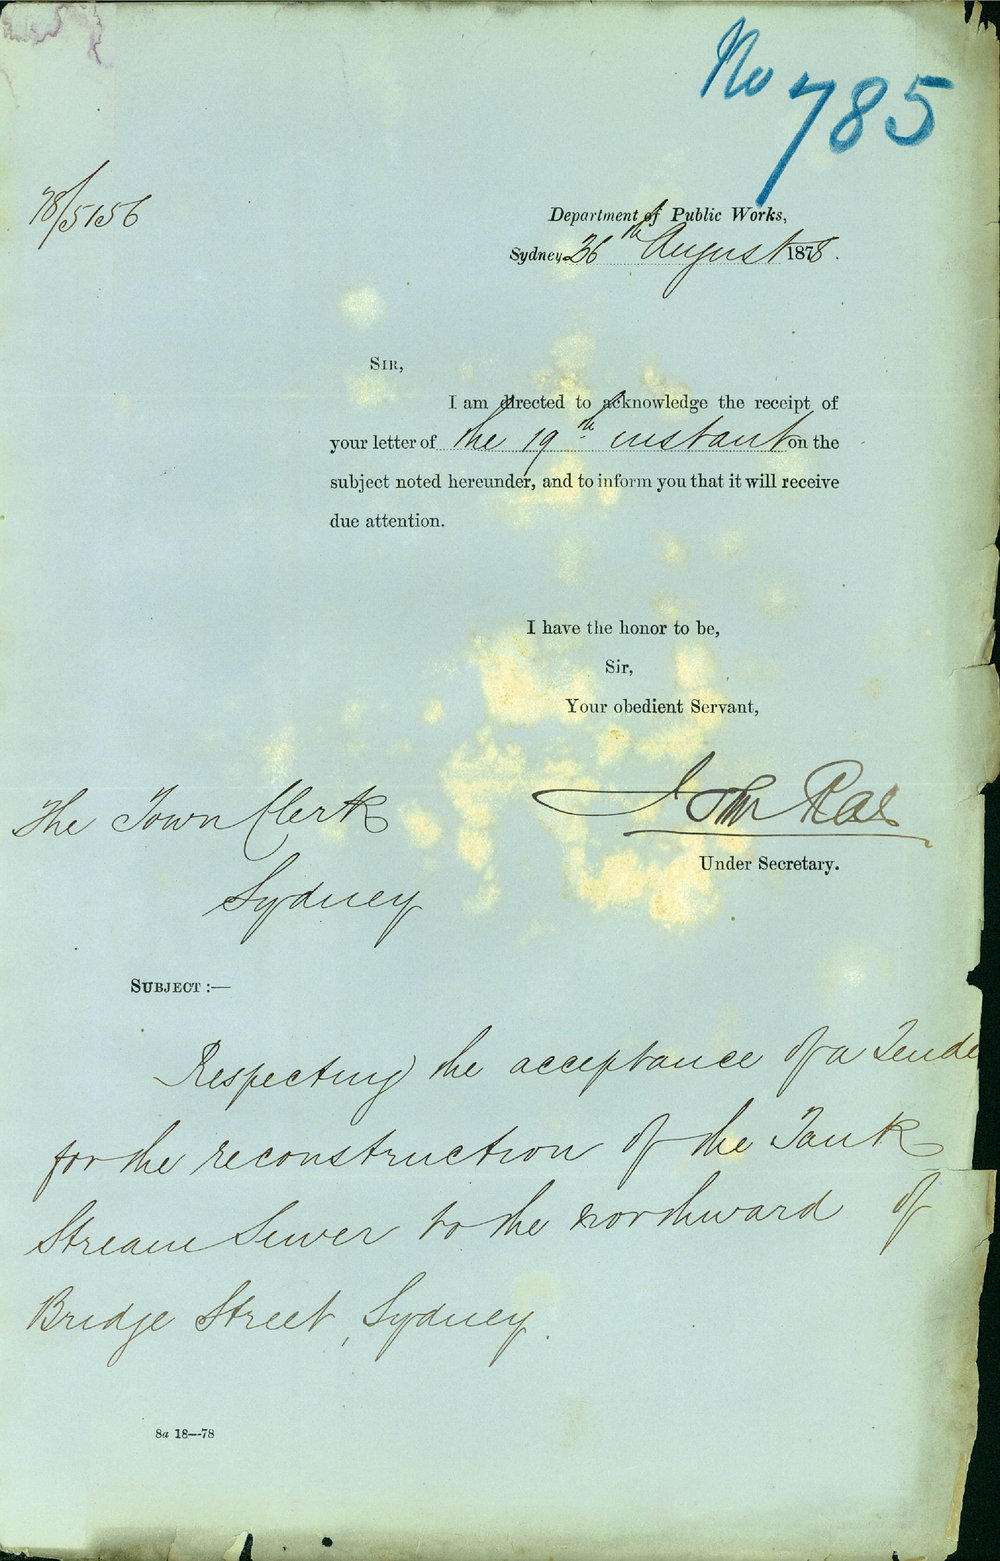 No 785
78/5156
Department of Public Works,
Sydney 26th August 1878.
SIR,
I am directed to acknowledge the receipt of
your letter of the 19th instant on the
subject noted hereunder, and to inform you that it will receive
due attention.
I have the honor to be,
Sir,
Your obedient Servant,
John Rae
Under Secretary.
The Town Clerk
Sydney
SUBJECT :—
Respecting the acceptance of a Tende
for the reconstruction of the Tank
Stream Sewer to the northward of
Bridge Street, Sydney.
8a 18—78